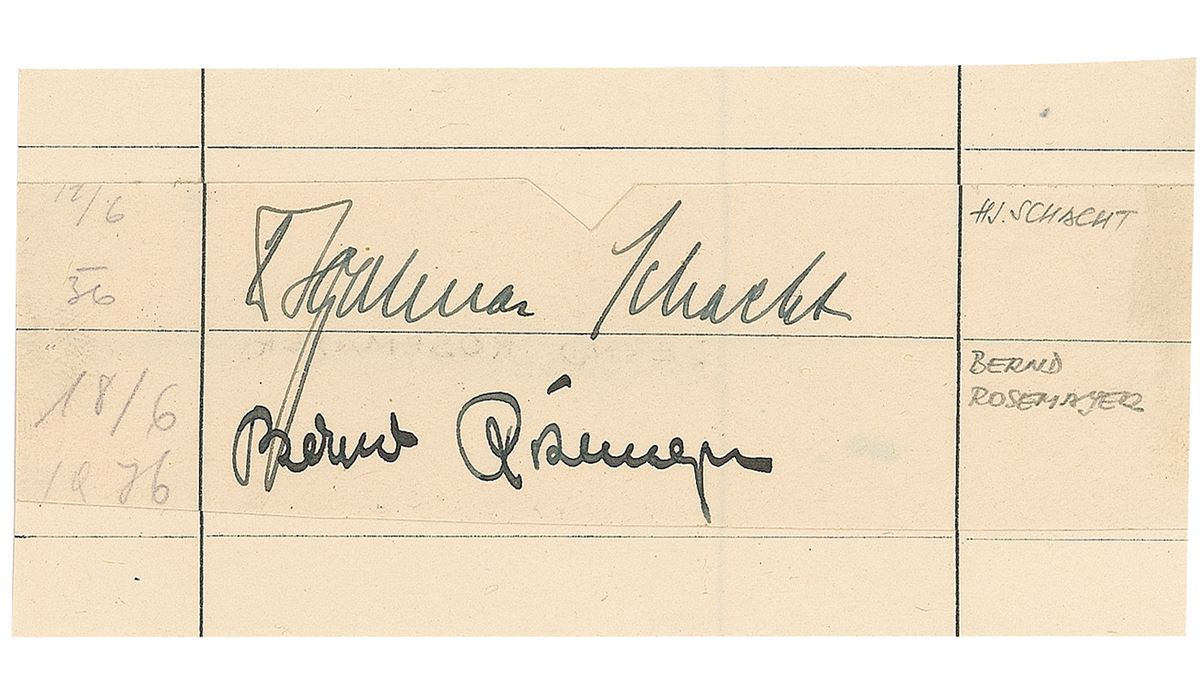 12/6 Hjalmar Schacht HJ. SCHACHT
36
18/6 Bernd Rosemeyer BERND
ROSEMAYER
1936